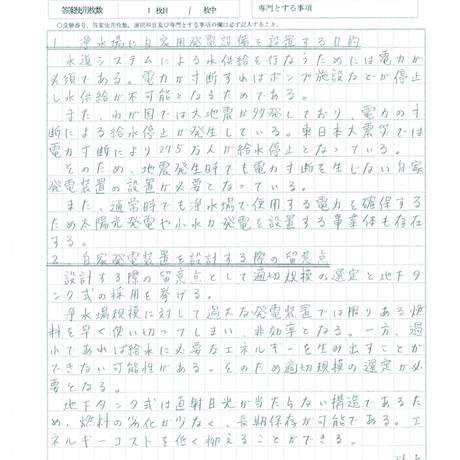 答案使用枚数 1枚目 枚中 専門とする事項
○受験番号、答案使用枚数、選択科目及び専門とする事項の欄は必ず記入すること。
1. 浄水場に自家用発電設備を設置する目的
水道システムによる水供給を行なうためには電力が
必須である。電力が寸断すればポンプ施設などが停止
し水供給が不可能となるためである。
また、わが国では大地震が多発しており、電力の寸
断による給水停止が発生している。東日本大震災では
電力寸断により225万人が給水停止となっている。
そのため、地震発生時でも電力寸断を生じない自家
発電装置の設置が必要となっている。
また、通常時でも浄水場で使用する電力を確保する
ため太陽光発電や小水力発電を設置する事業体も存在
する。
2. 自家発電装置を設計する際の留意点
設計する際の留意点として適切規模の選定と地下タ
ンク式の採用を挙げる。
浄水場規模に対して過大な発電装置では限りある燃
料を早く使い切ってしまい、非効率となる。一方、過
小であれば給水に必要なエネルギーを生み出すことが
できない可能性がある。そのため適切規模の選定が必
要となる。
地下タンク式は直射日光が当たらない構造であるた
め、燃料の劣化が少なく、長期保存が可能である。エ
ネルギーコストを低く抑えることができる。
以上